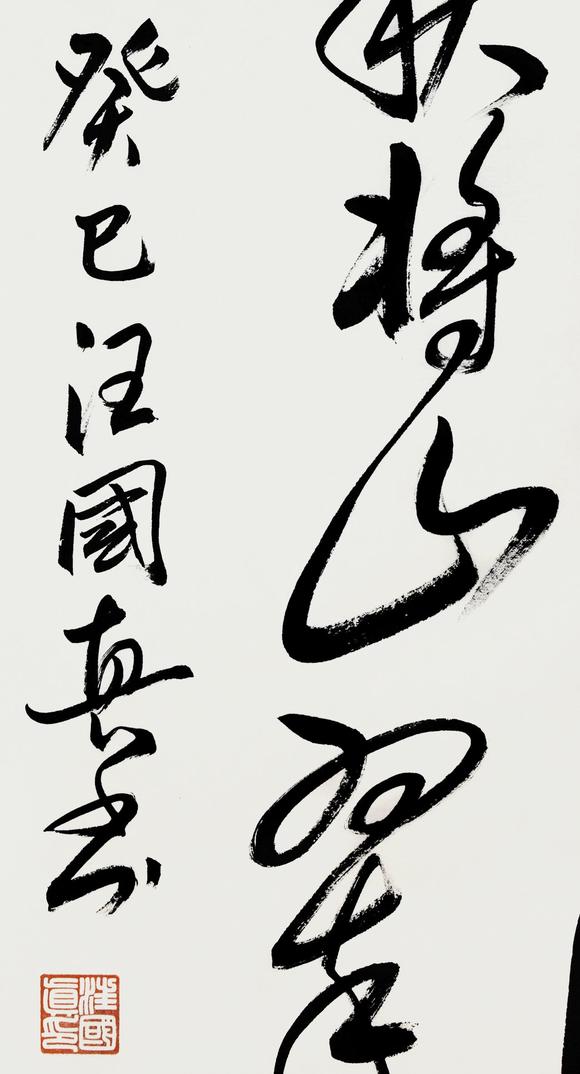 將山翠
癸巳汪國真书
汪國
真印